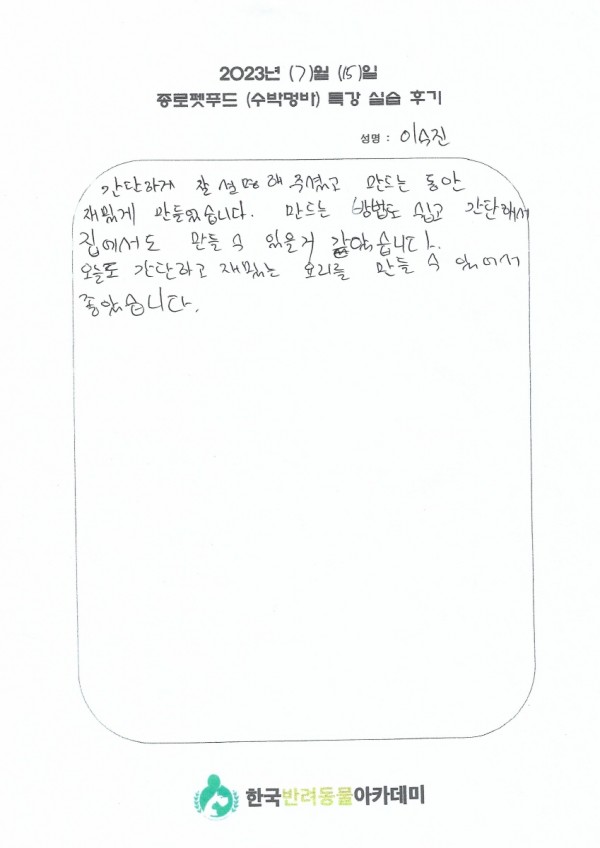 2023년 (7)월 (15)일
종로펫푸드 (수박멍바) 특강 실습 후기
성명 : 이수진
간단하게 잘 설명해 주셨고 만드는 동안
재밌게 만들었습니다. 만드는 방법도 쉽고 간단해서
집에서도 만들 수 있을거 같았습니다.
오늘도 간단하고 재밌는 요리를 만들 수 있어서
좋았습니다.
한국반려동물아카데미